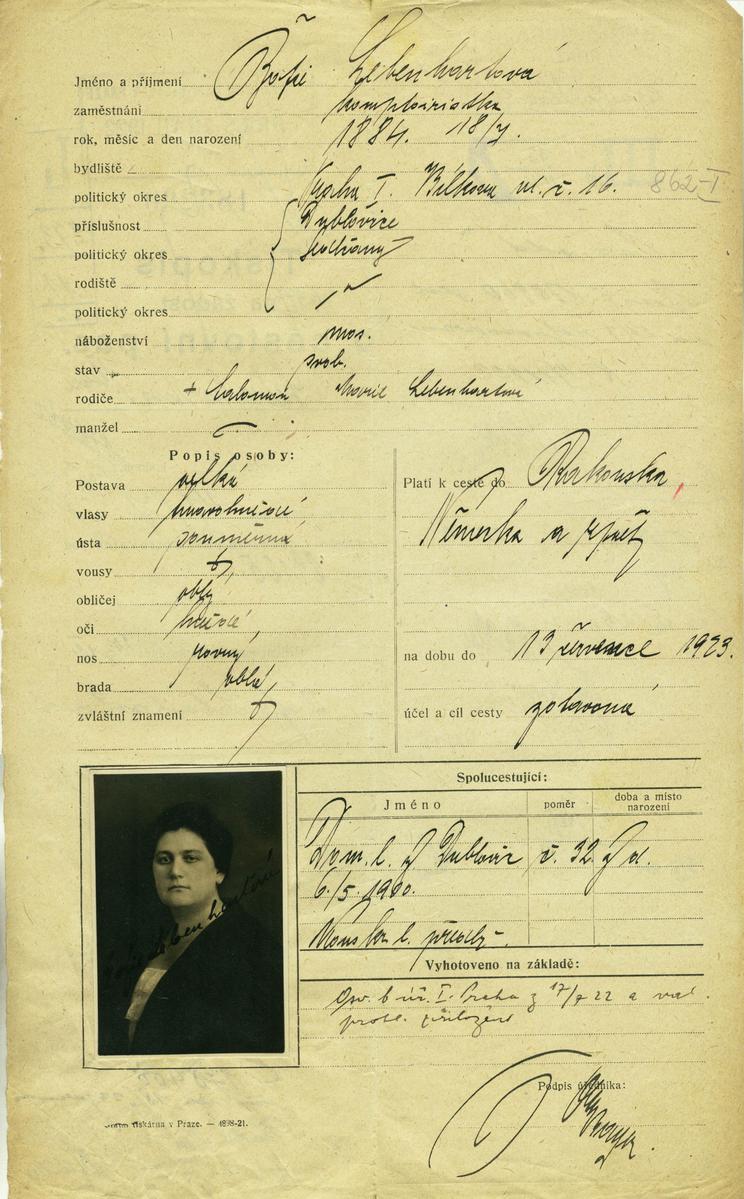 Jméno a příjmení Lebenhartová
zaměstnání
rok, měsíc a den narození 1884. 18/7.
bydliště
politický okres Praha I. Bílkova ul. č. 16. 862-I
příslušnost Dublovice
politický okres Sedlčany
rodiště
politický okres
náboženství mos.
stav svob.
rodiče + Salomon Marie Lebenhartovi
manžel
Popis osoby:
Postava velká
vlasy tmavohnědé
ústa souměrná
vousy
obličej oblý
oči hnědé
nos rovný
brada oblá
zvláštní znamení
Platí k cestě do Rakouska,
Německa a zpět
na dobu do 13 července 1923.
účel a cíl cesty zotavená
Spolucestující:
Jméno poměr doba a místo narození
Dom. l. z Dublovic č. 32 z d.
6./5. 1900.
l.
Vyhotoveno na základě:
I. Praha z 17/7 22 a
přiložení
Podpis úředníka:
tiskárna v Praze. — 4898-21.